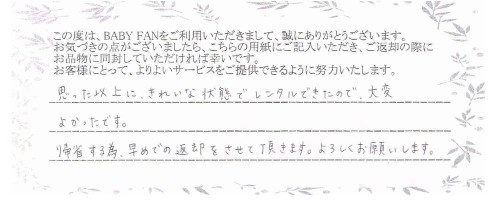 この度は、BABY FANをご利用いただきまして、誠にありがとうございます。
お気づきの点がございましたら、こちらの用紙にご記入いただき、ご返却の際に
お品物に同封していただければ幸いです。
お客様にとって、よりよいサービスをご提供できるように努力いたします。
思った以上に、きれいな状態でレンタルできたので、大変
よかったです。
帰省する為、早めでの返却をさせて頂きます。よろしくお願いします。